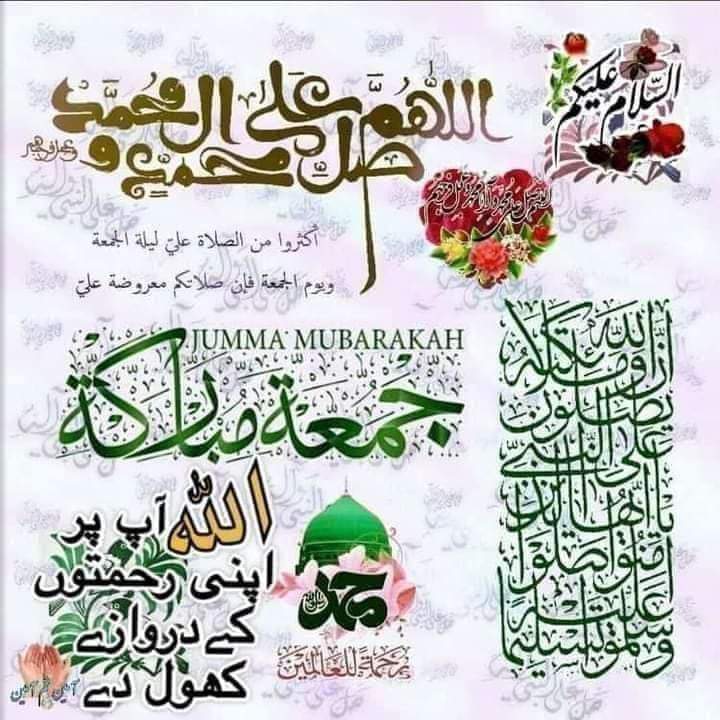 السلام علیکم
اللهم صل علی محمد و ال محمد
أكثروا من الصلاة عليّ ليلة الجمعة
ويوم الجمعة فإن صلاتكم معروضة عليّ
JUMMA MUBARAKAH
جمعة مباركة
إن الله وملئكته
يصلون
على النبي
يا أيها الذين
آمنوا صلوا
عليه
وسلموا تسليما
الله آپ پر
اپنی رحمتوں
کے دروازے
کھول دے
آمین ثم آمین
محمد
رحمة للعالمين